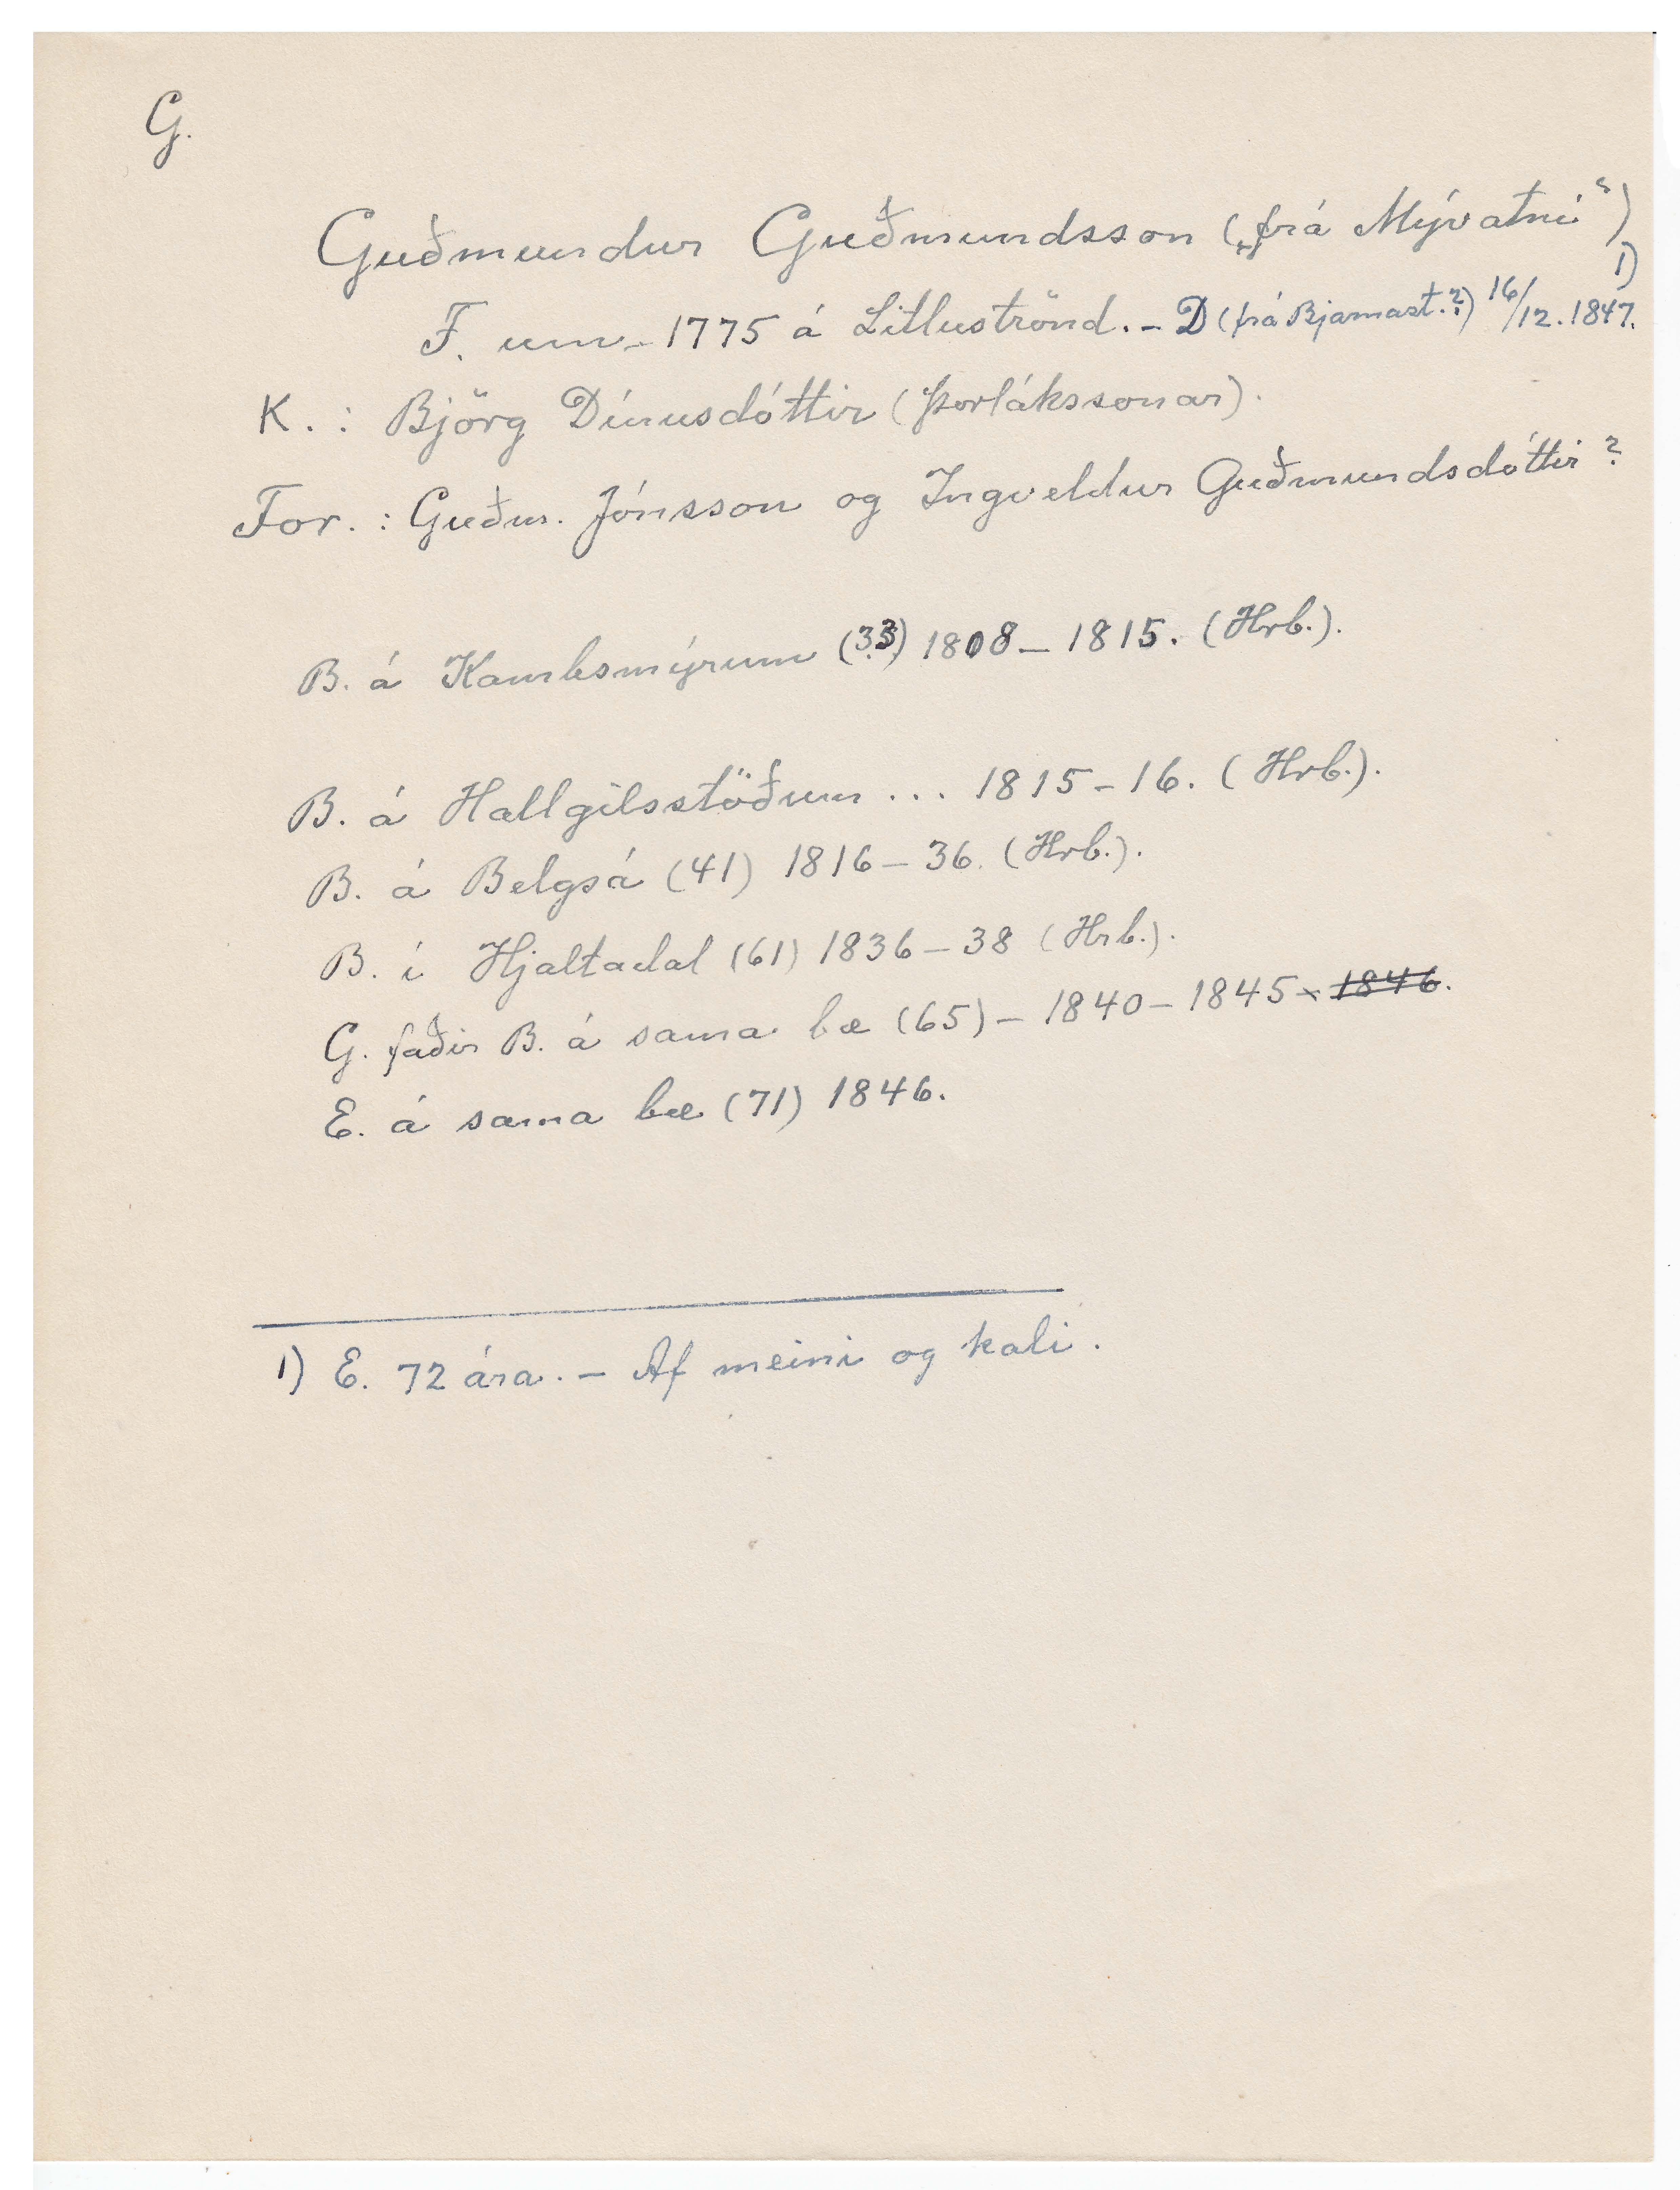 G.
Guðmundur Guðmundsson („frá Mývatni“)
F. um 1775 á Litluströnd. - D (frá Bjarnast.?) 16/12. 1847. 1)
K. : Björg Dínusdóttir (Þorlákssonar).
For. : Guðm. Jónsson og Ingveldur Guðmundsdóttir ?
B. á Kambsmýrum (33) 1808 - 1815. (Hrb.).
B. á Hallgilsstöðum ... 1815 - 16. (Hrb.).
B. á Belgsá (41) 1816 - 36. (Hrb.).
B. í Hjaltadal (61) 1836 - 38 (Hrb.).
G. faðir B. á sama bæ (65) - 1840 - 1845 - 1846.
E. á sama bæ (71) 1846.
1) E. 72 ára. - Af meini og kali.